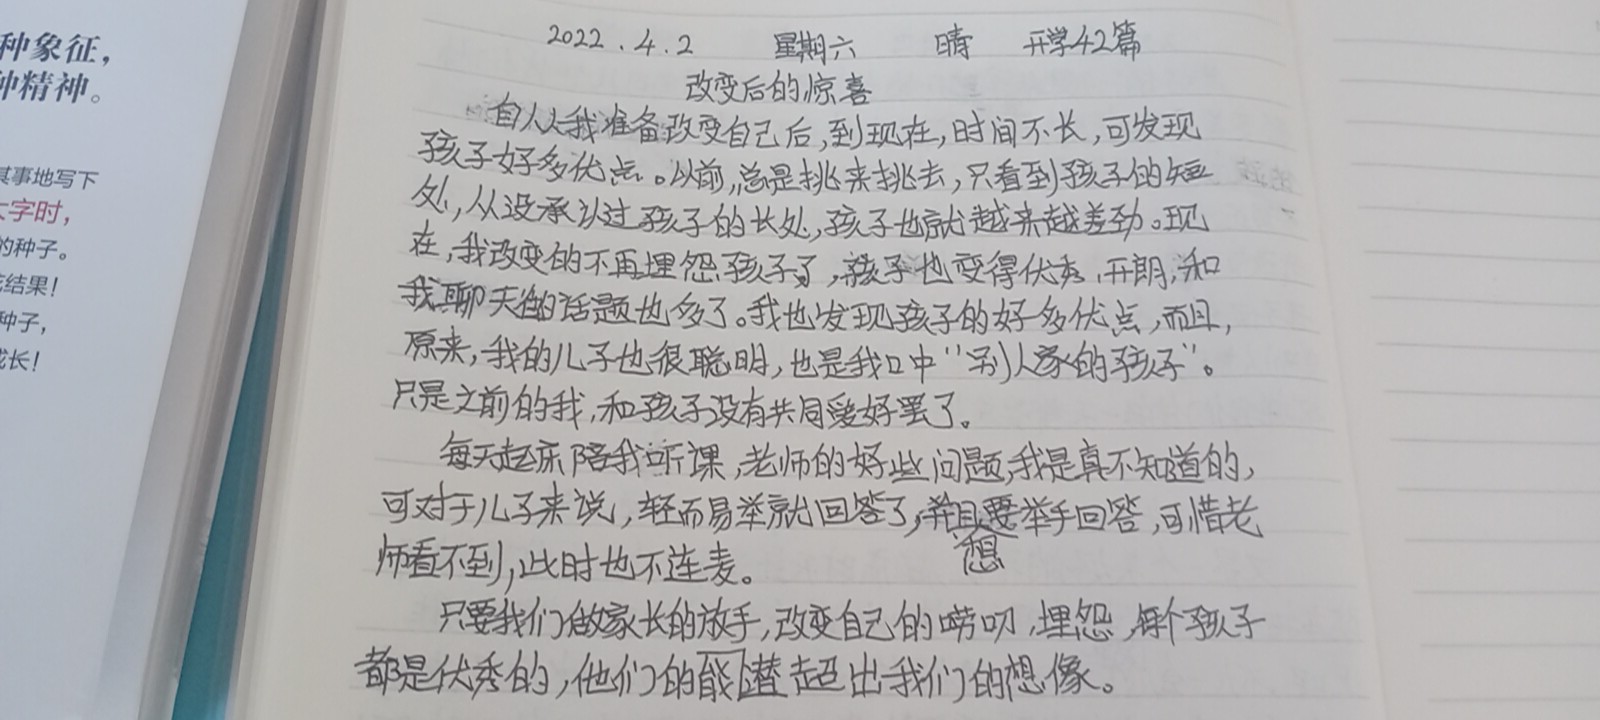 种象征，
种精神。
其事地写下
大字时，
的种子。
花结果！
种子，
成长！
2022.4.2 星期六 晴 开学42篇
改变后的惊喜
自从我准备改变自己后，到现在，时间不长，可发现
孩子好多优点。以前，总是挑来挑去，只看到孩子的短
处，从没承认过孩子的长处，孩子也就越来越差劲。现
在，我改变的不再埋怨孩子了，孩子也变得优秀，开朗，和
我聊天的话题也多了。我也发现孩子的好多优点，而且，
原来，我的儿子也很聪明，也是我口中“别人家的孩子”。
只是之前的我，和孩子没有共同爱好罢了。
每天起床陪我听课，老师的好些问题，我是真不知道的，
可对于儿子来说，轻而易举就回答了，并且要想举手回答，可惜老
师看不到，此时也不连麦。
只要我们做家长的放手，改变自己的唠叨，埋怨，每个孩子
都是优秀的，他们的能潜超出我们的想像。